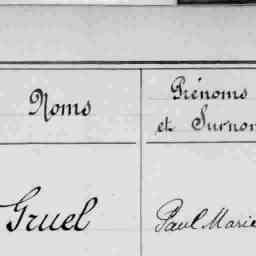 Noms
Prénoms
et Surnom
Gruel
Paul Marie